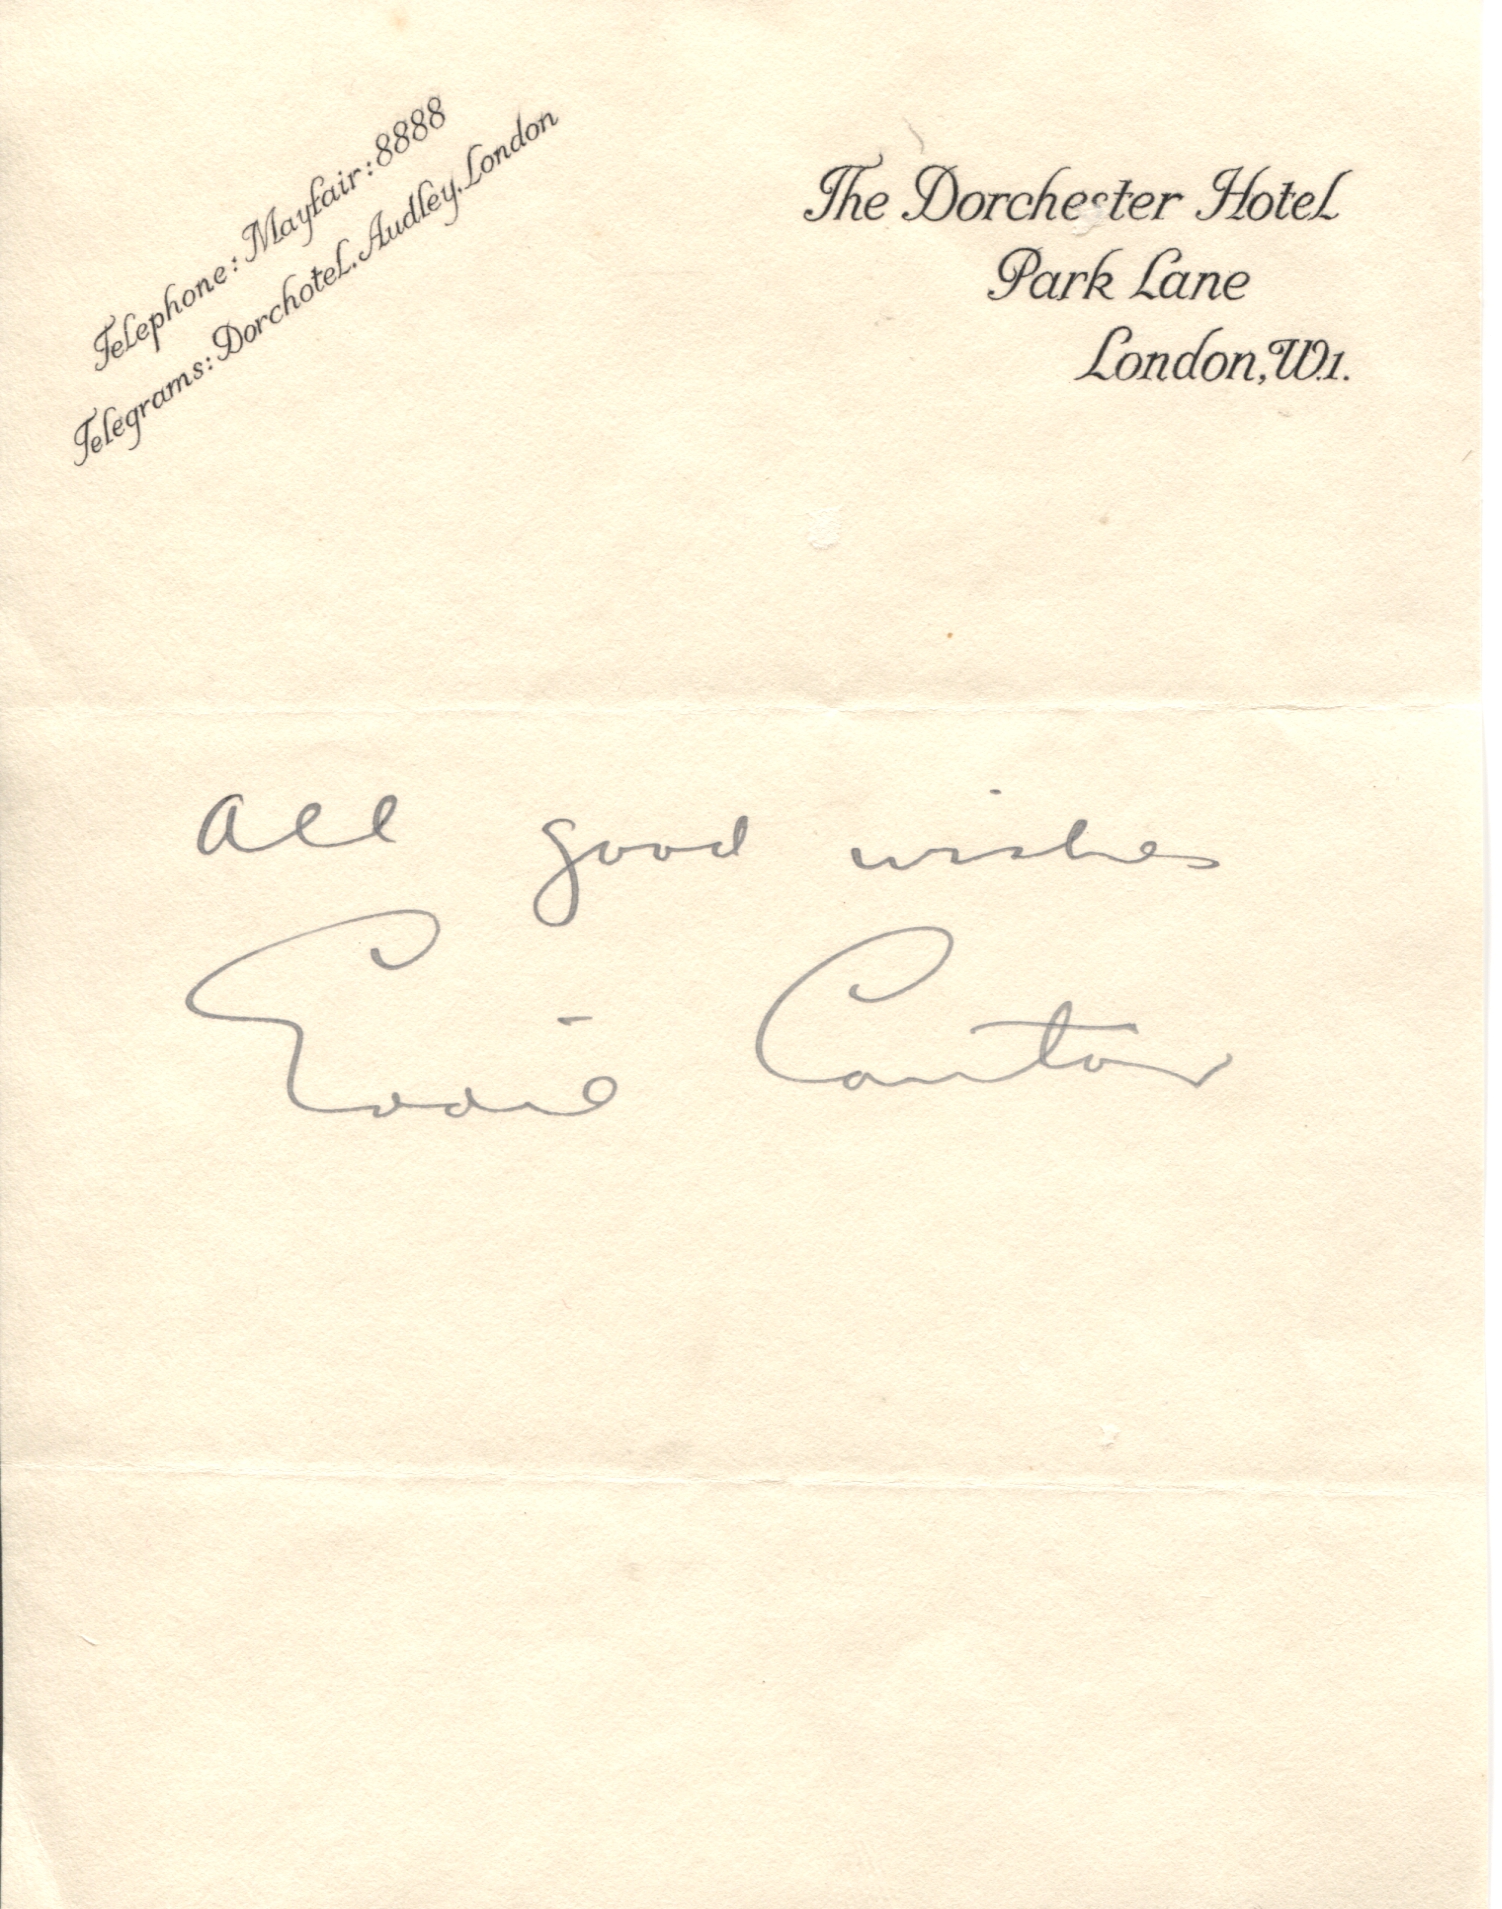 Telephone: Mayfair: 8888
Telegrams: Dorchotel. Audley. London
The Dorchester Hotel
Park Lane
London, W.1.
All good wishes
Eddie Cantor